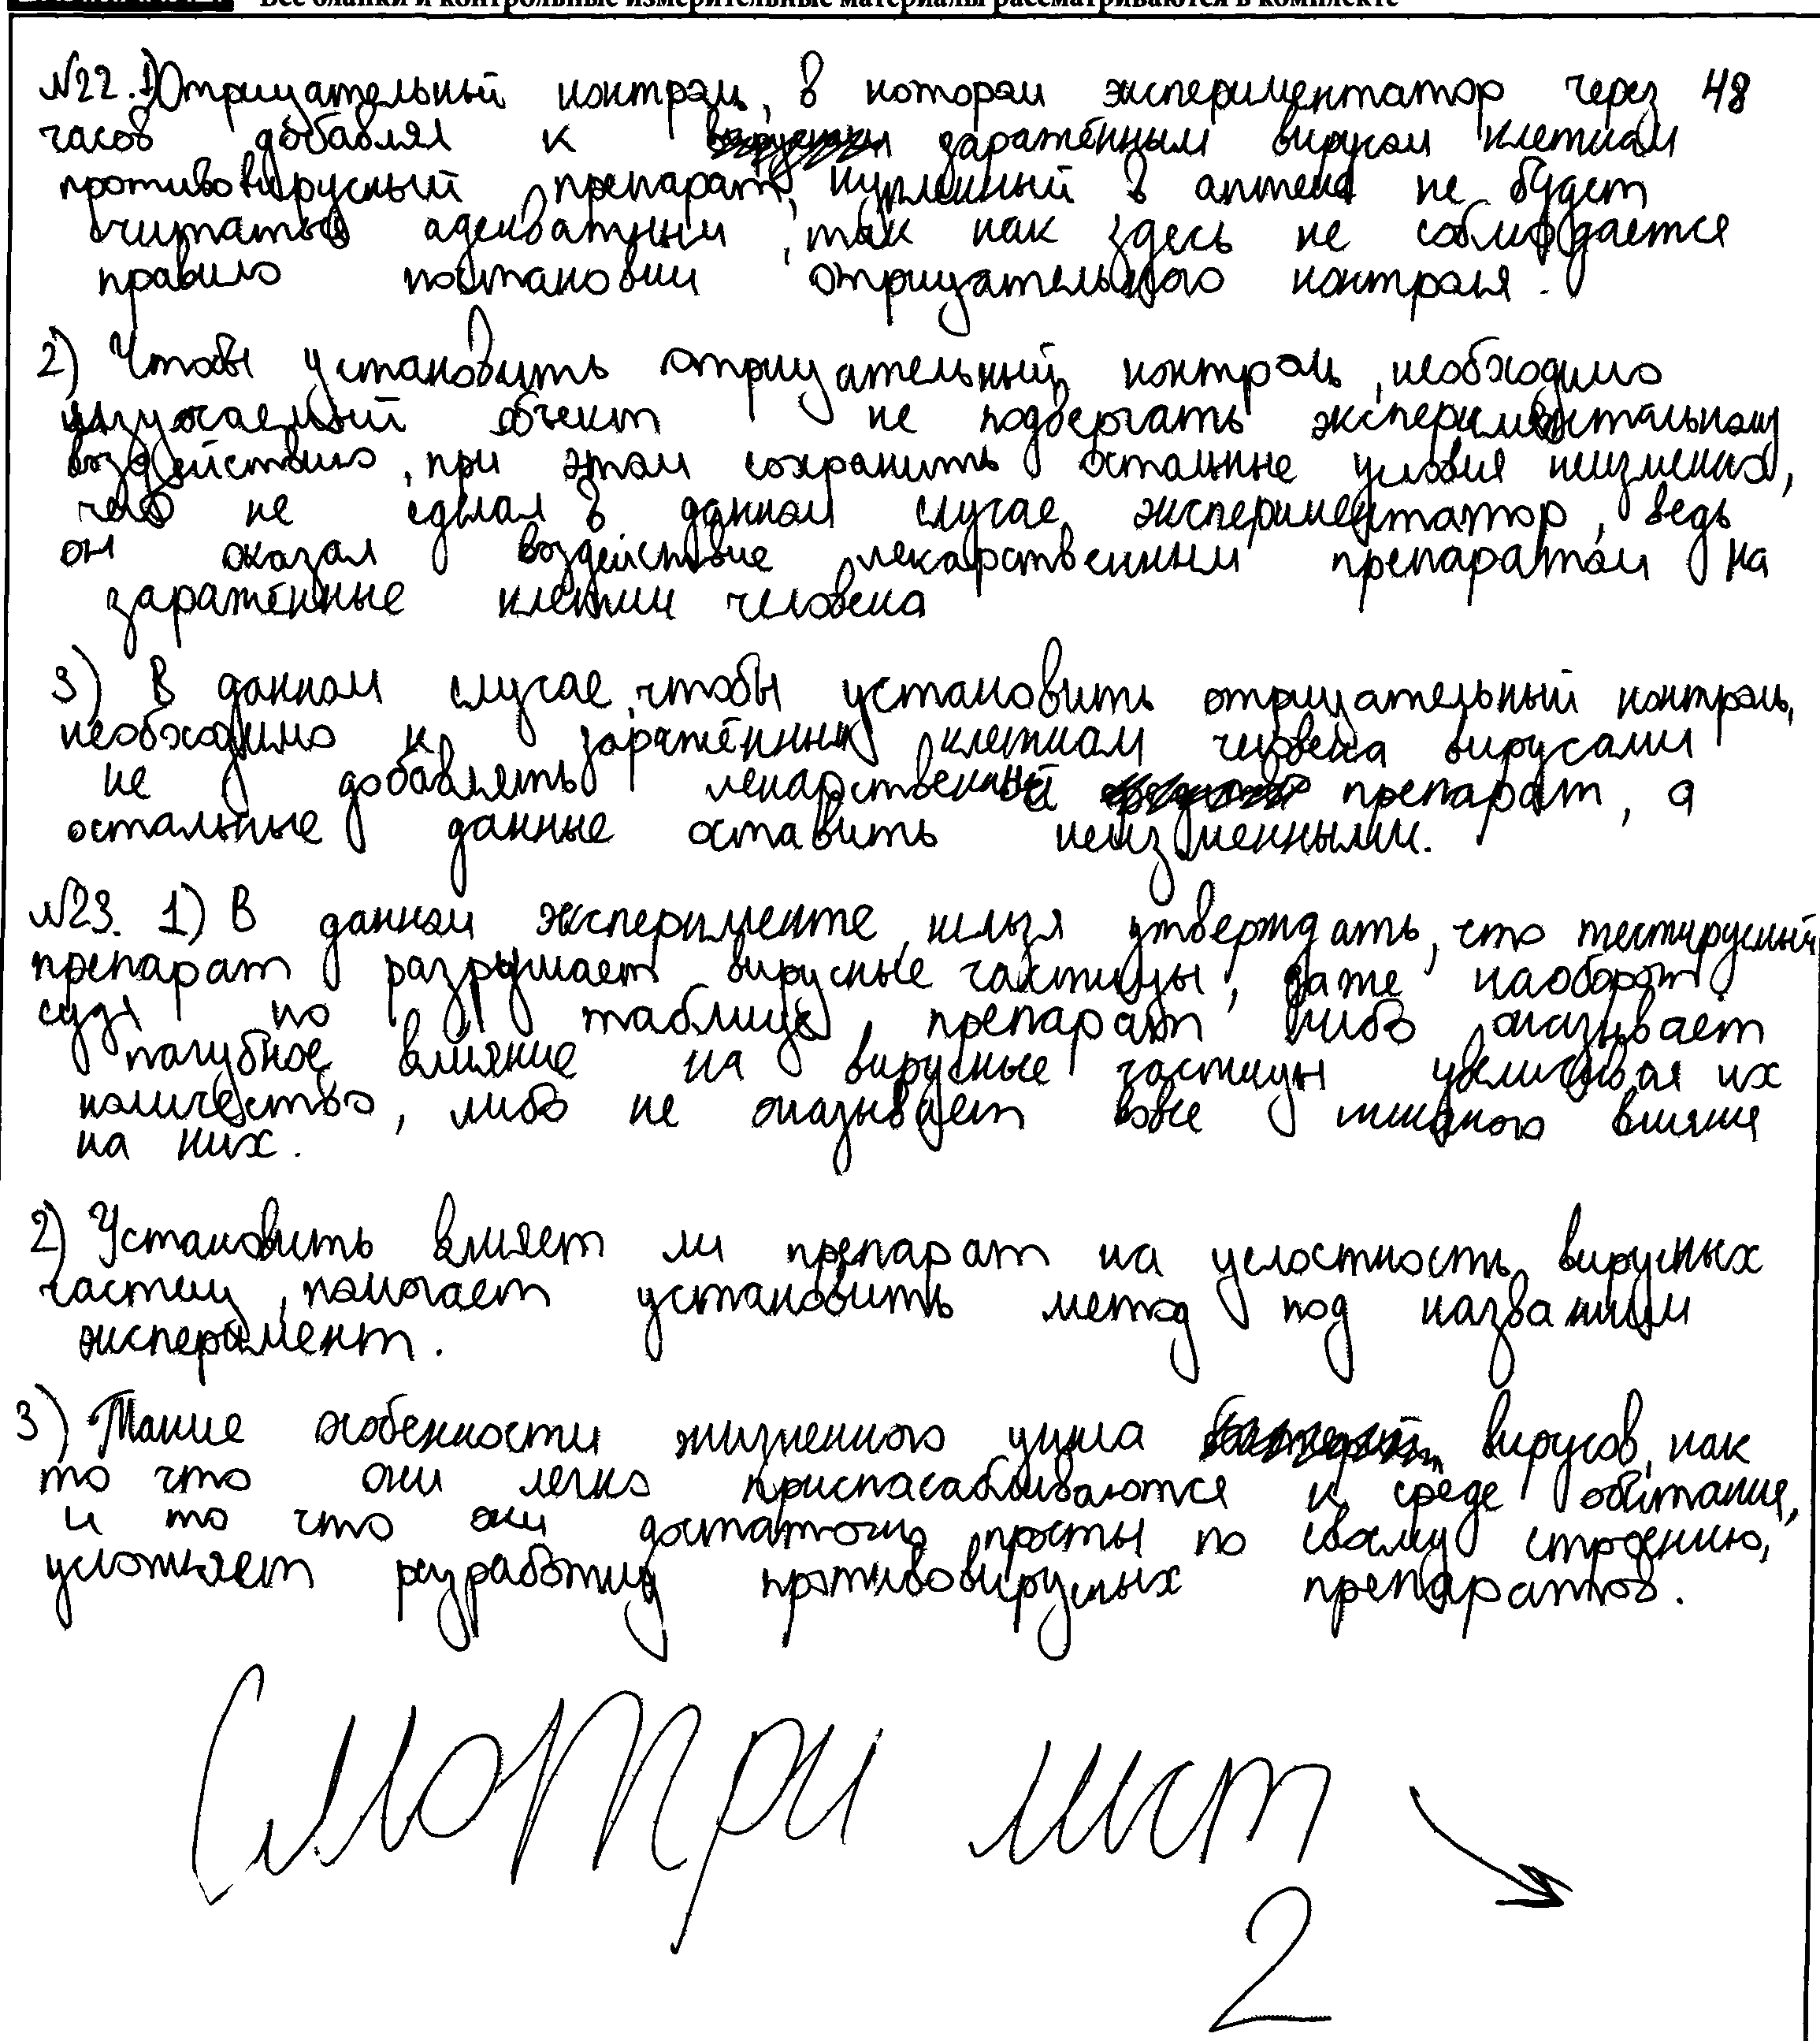 Все бланки и контрольные измерительные материалы рассматриваются в комплекте
№22. 1) Отрицательный контроль, в котором экспериментатор через 48
часов добавлял к заражённым вирусом клеткам
противовирусный препарат, купленный в аптеке не будет
считаться адекватным, так как здесь не соблюдается
правило постановки отрицательного контроля.
2) Чтобы установить отрицательный контроль, необходимо
изучаемый объект не подвергать экспериментальному
воздействию, при этом сохранить остальные условия неизменно,
чего не сделал в данном случае экспериментатор, ведь
он оказал воздействие лекарственным препаратом на
заражённые клетки человека
3) В данном случае, чтобы установить отрицательный контроль,
необходимо к заражённым клеткам человека вирусами
не добавлять лекарственный препарат, а
остальные данные оставить неизменными.
№23. 1) В данном эксперименте, нельзя утверждать, что тестируемый
препарат разрушает вирусные частицы, даже наоборот,
судя по таблице, препарат либо оказывает
пагубное влияние на вирусные частицы увеличивая их
количество, либо не оказывает вовсе никакого влияния
на них.
2) Установить влияет ли препарат на целостность вирусных
частиц, помогает установить метод под названием
эксперимент.
3) Такие особенности жизненного цикла вирусов, как
то что они легко приспасабливаются к среде обитания,
и то что они достаточно просты по своему строению,
усложняет разработку противовирусных препаратов.
Смотри лист
2